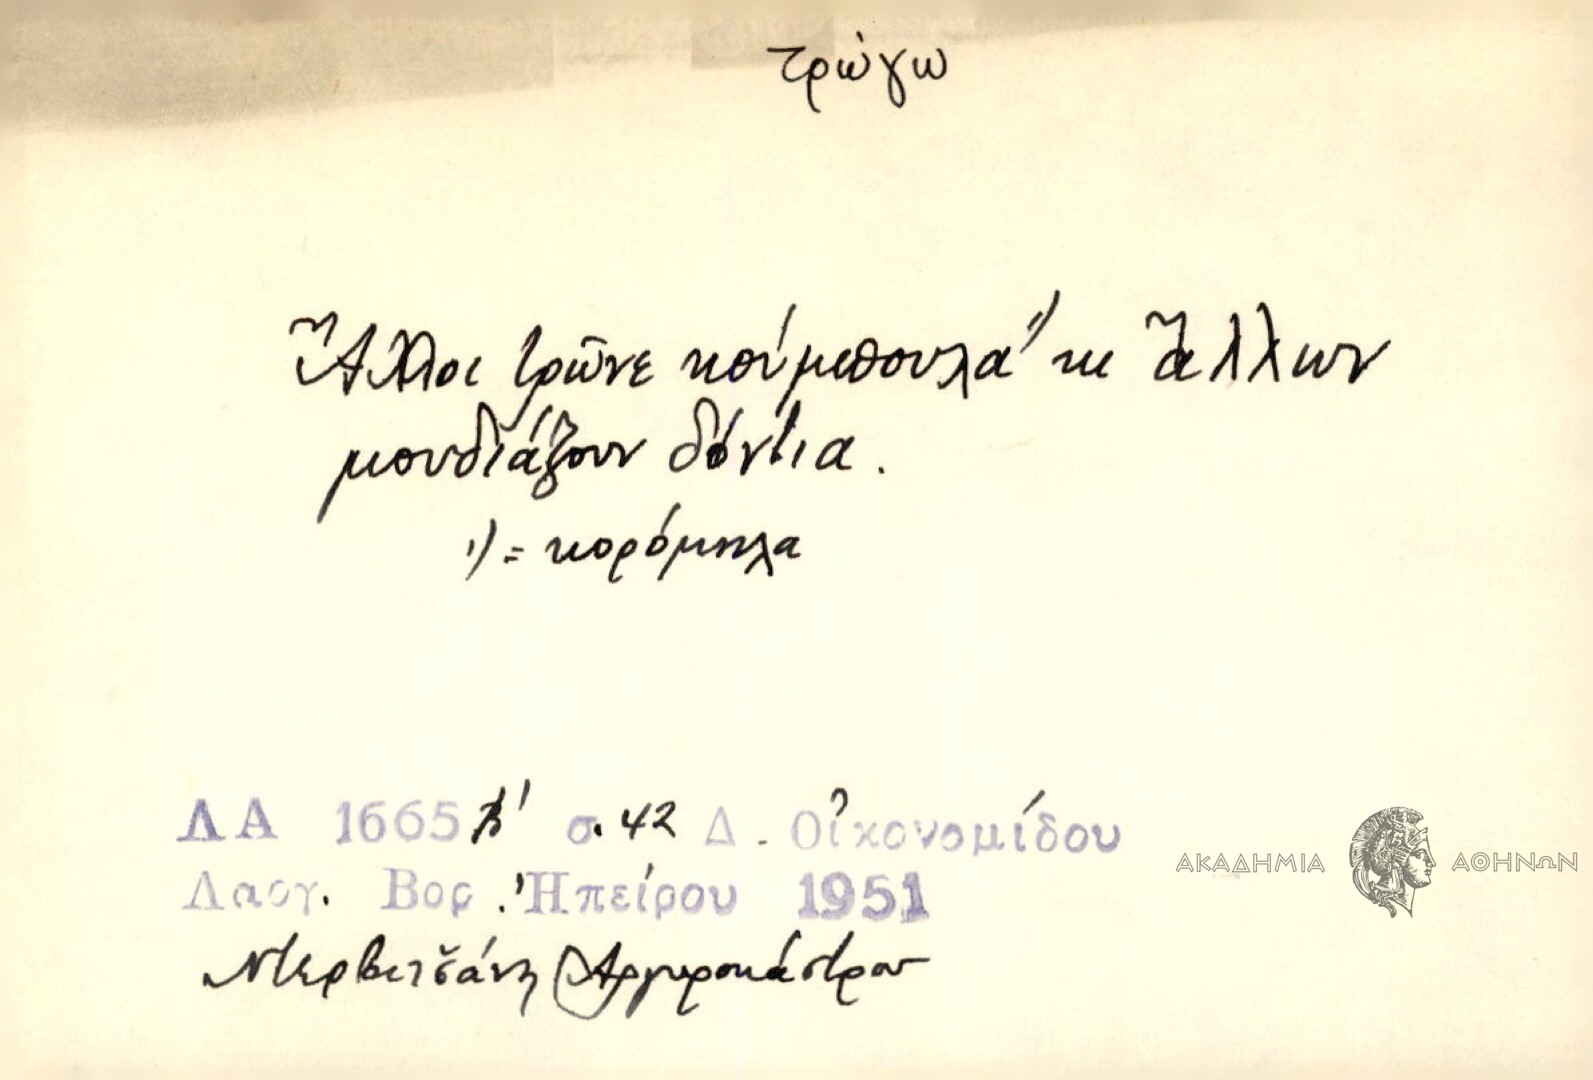 τρώγω
Ἄλλοι τρῶνε κούμπουλα¹⁾ κι ἄλλων
μουδιάζουν δόντια.
¹⁾ = κορόμηλα
ΛΑ 1665 Β' σ. 42 Δ. Οἰκονομίδου
Λαογ. Βορ. Ἠπείρου 1951
Ντερβιτσάνη Ἀργυροκάστρου
ΑΚΑΔΗΜΙΑ ΑΘΗΝΩΝ